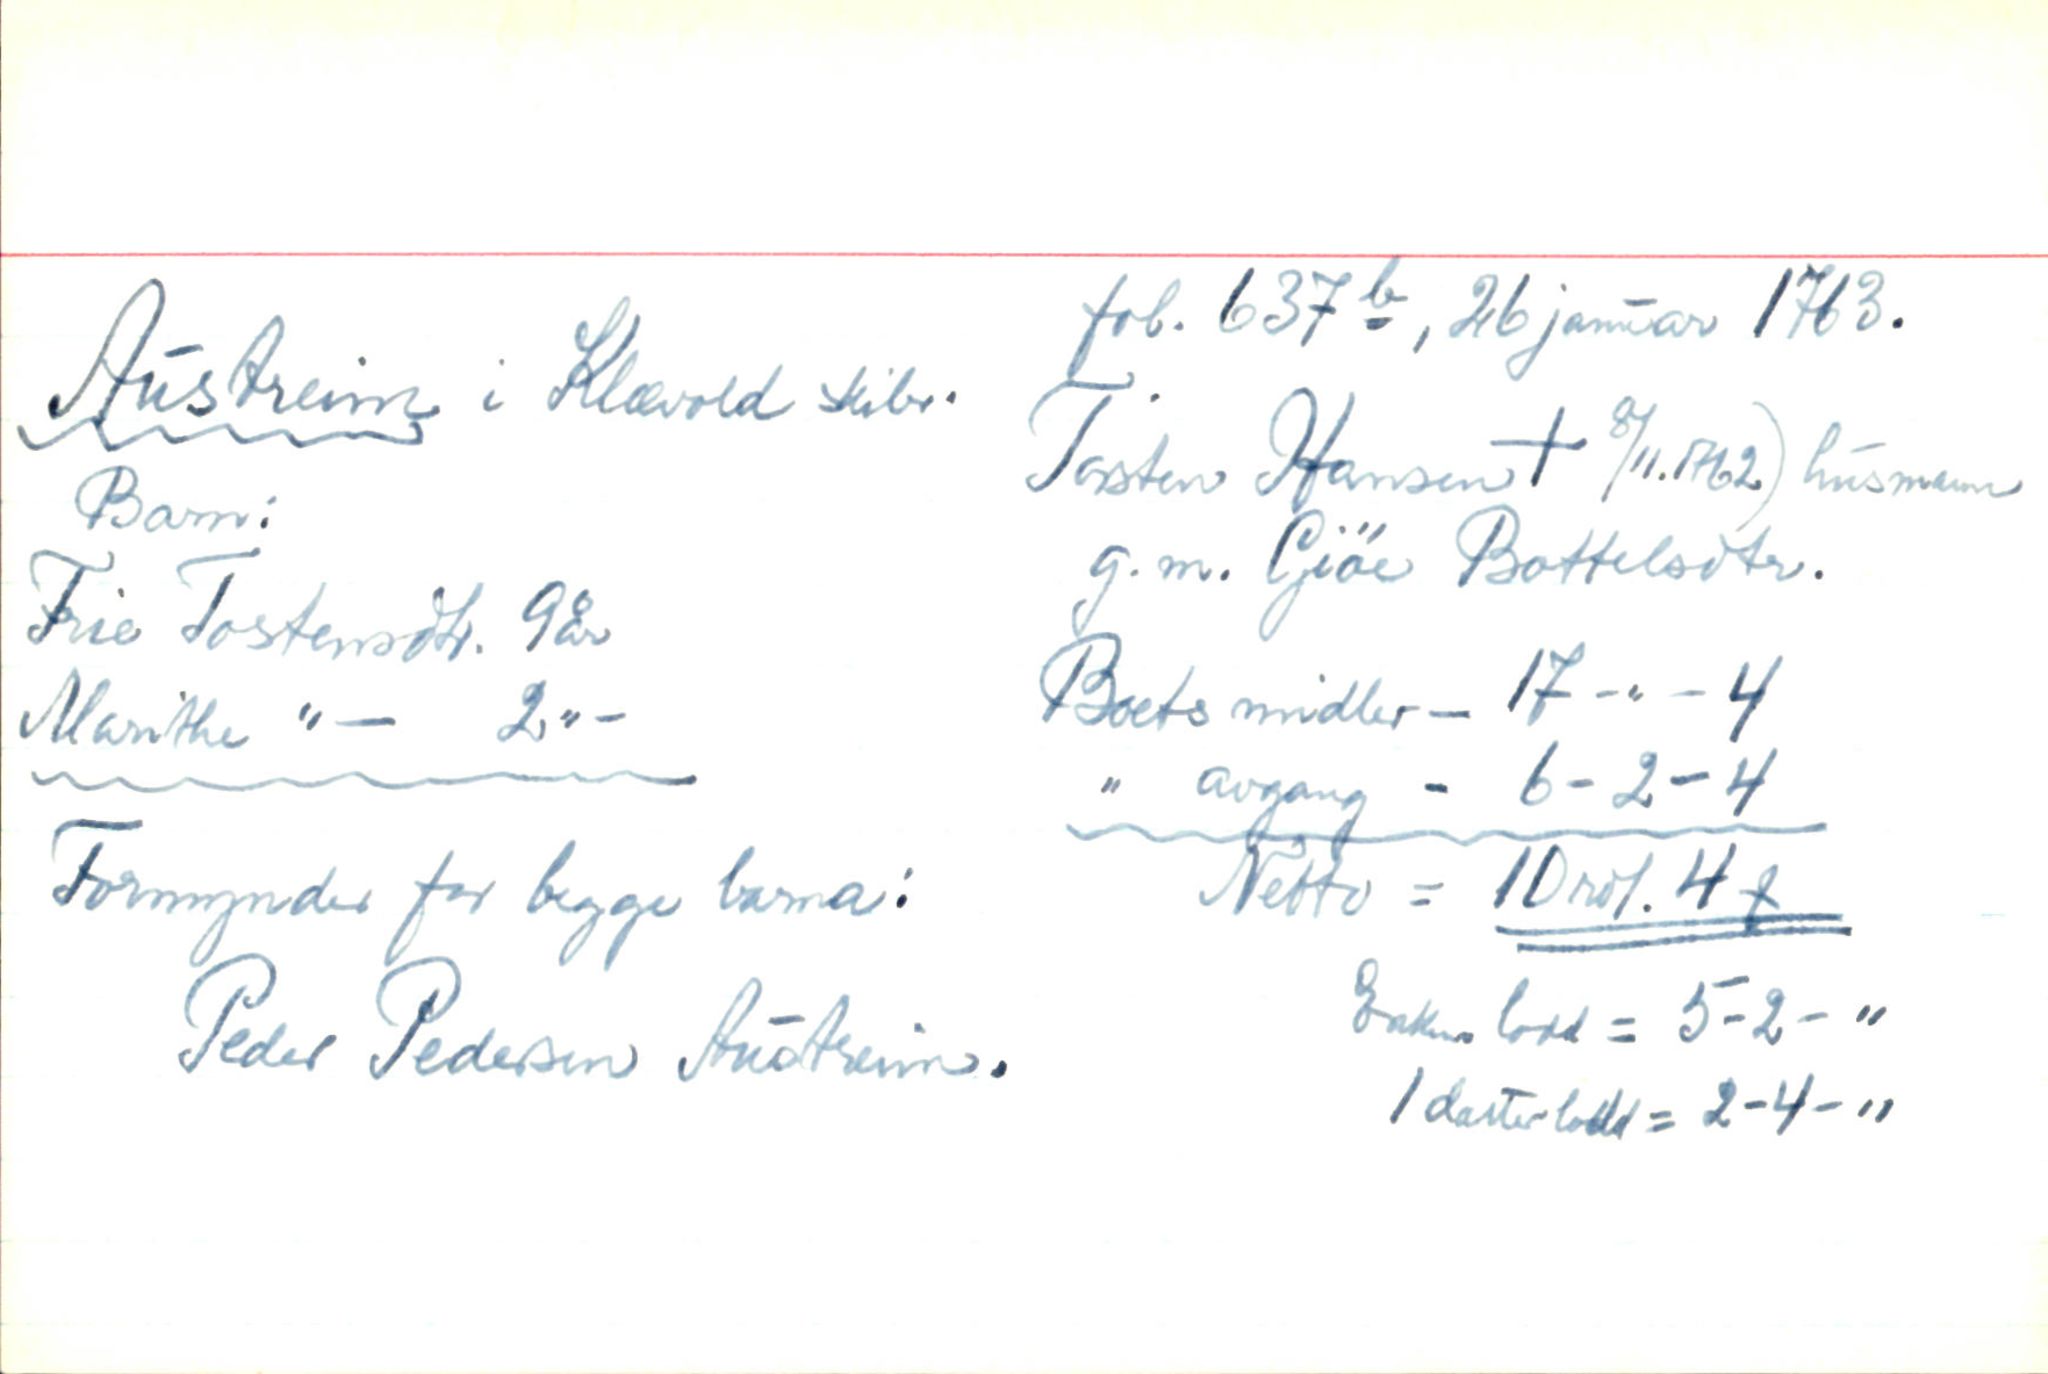 Austreim i Klævold skibr.
Barn:
Frie Tostensdtr. 9 år
Marithe "— 2 "-
Formynder for begge barna:
Peder Pedersen Austreim.
fol. 637 b, 26 januar 1763.
Tosten Hansen † 8/11.1762) husmann
g.m. Gjöe Bottelsdtr.
Boets midler — 17 - " - 4
" avgang - 6 - 2 - 4
Netto = 10 rdl. 4
Enkens lodd = 5 - 2 - "
1 datterlodd = 2 - 4 - "